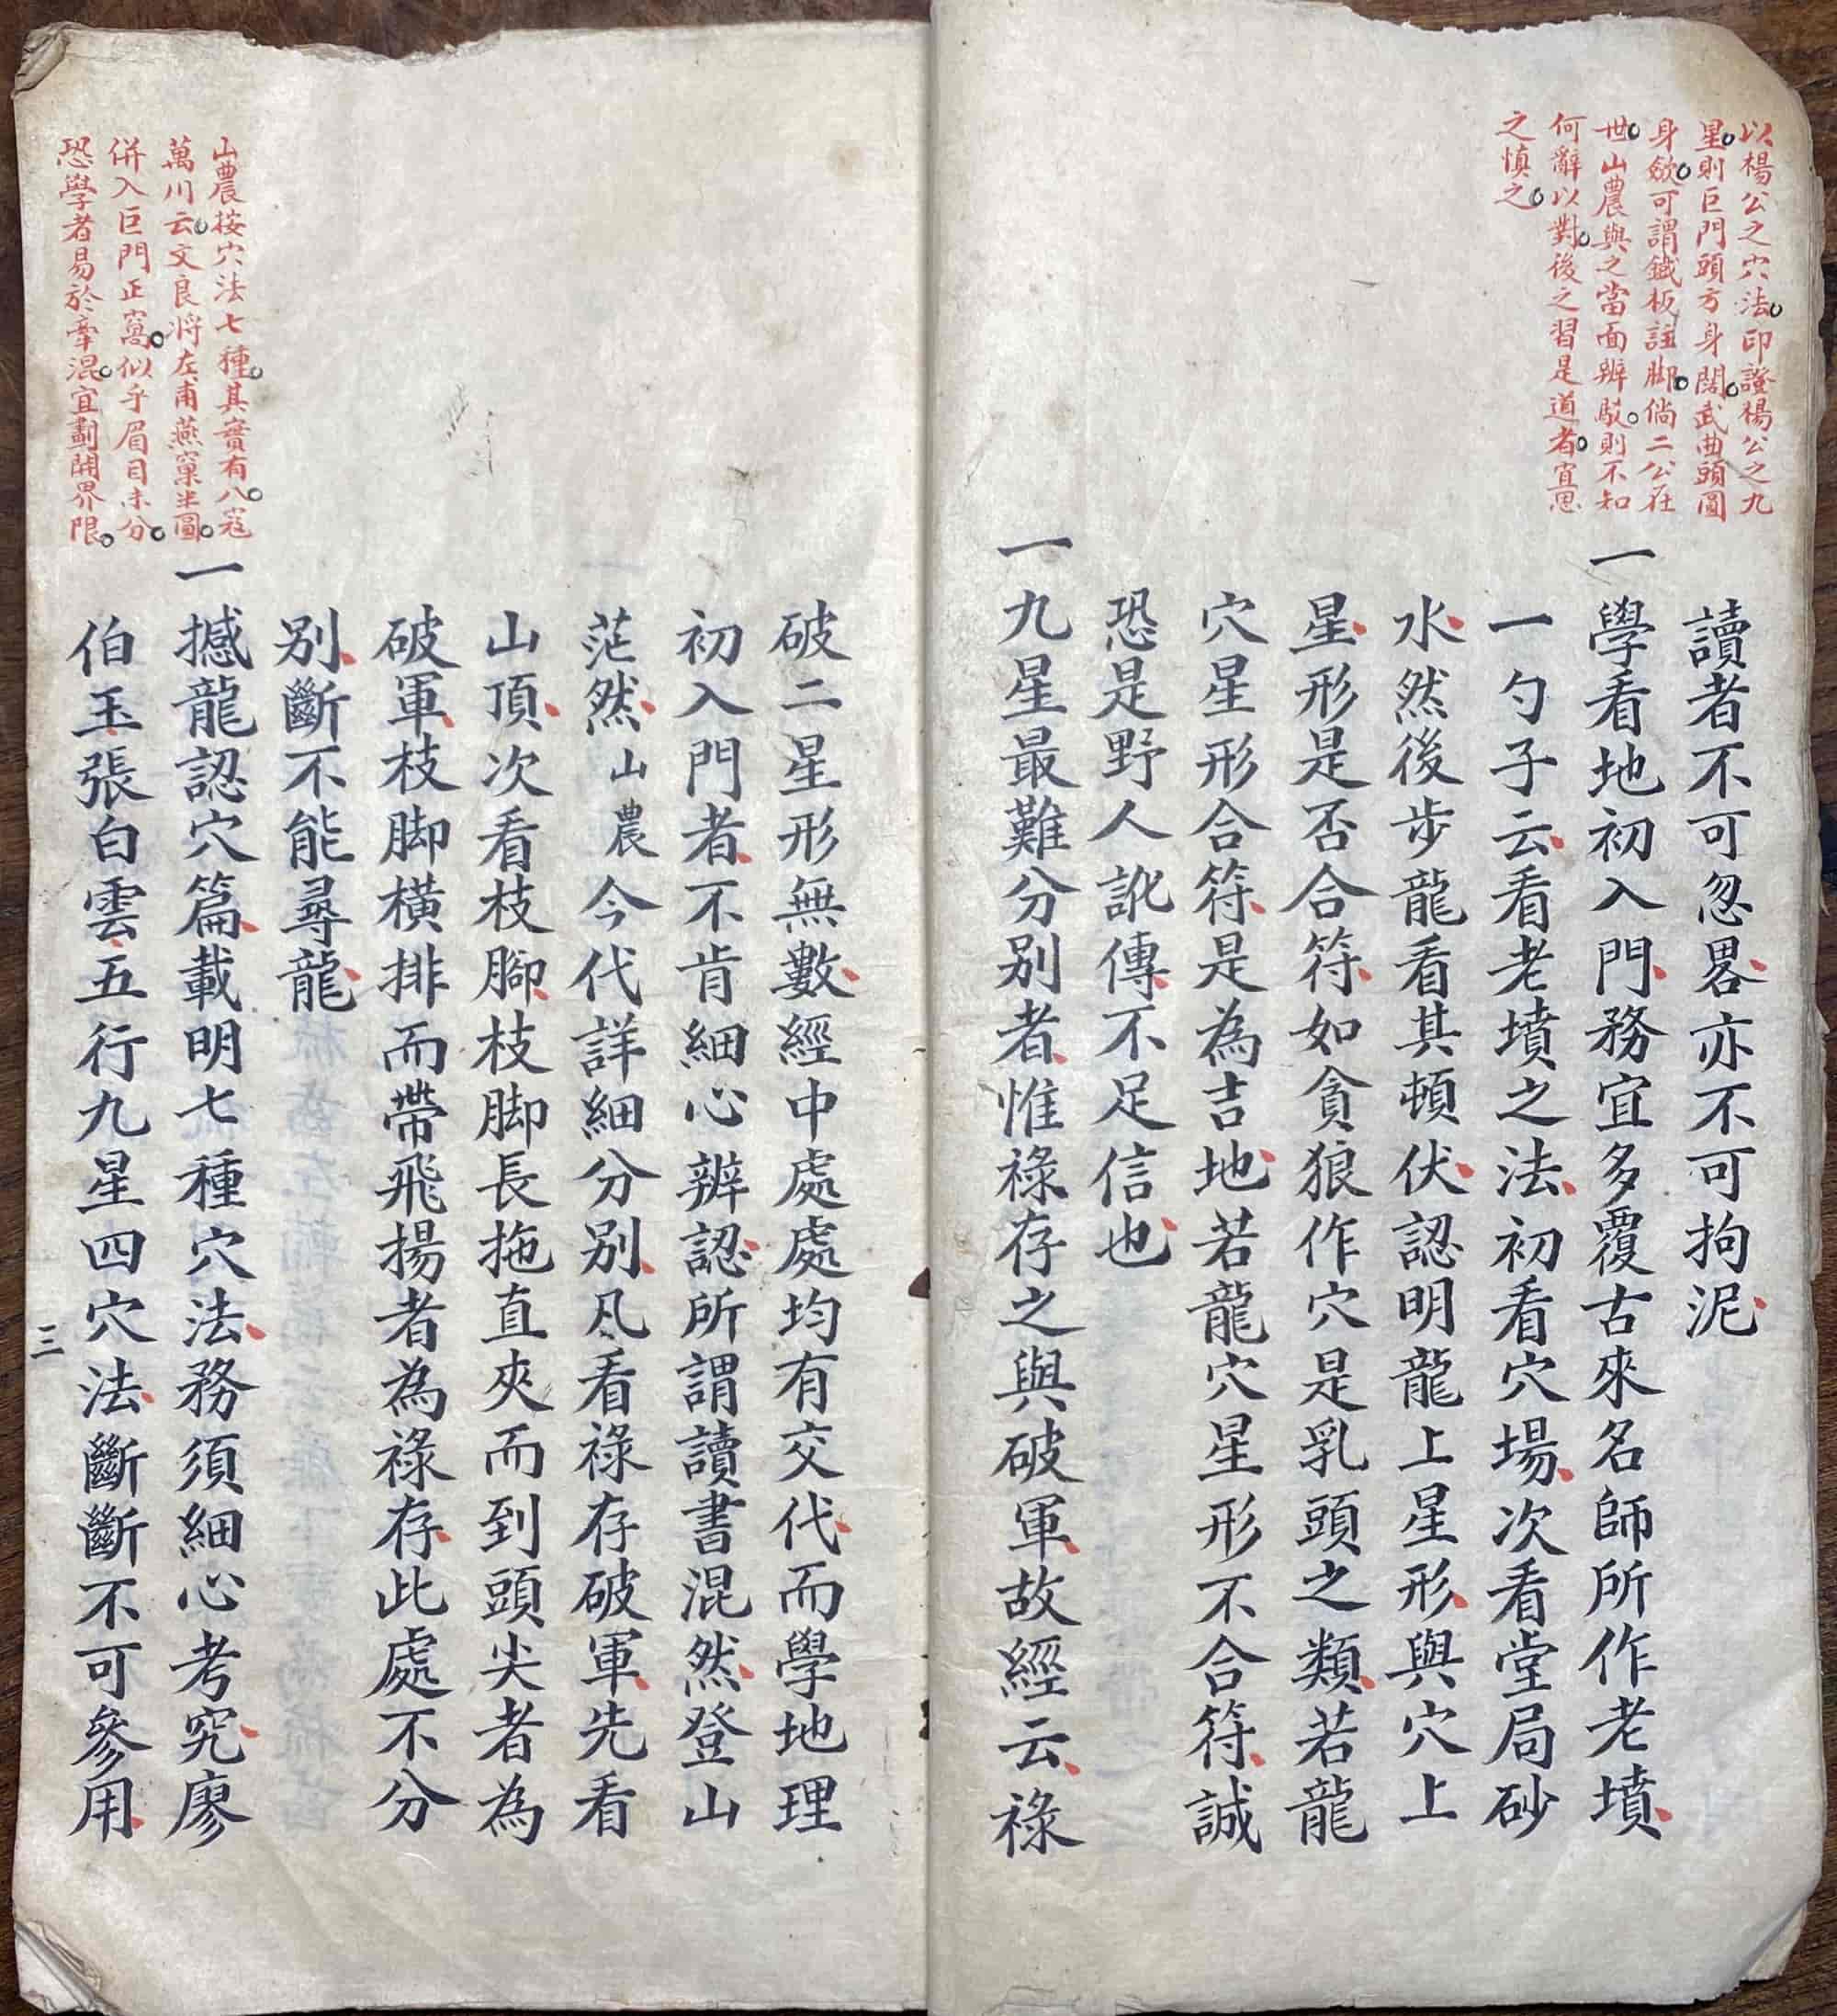 以楊公之穴法印證楊公之九
星則巨門頭方身闊武曲頭圓
身斂可謂鐵板註腳倘二公在
世山農與之當面辨駁則不知
何辭以對後之習是道者宜思
之慎之
讀者不可忽畧亦不可拘泥
一學看地初入門務宜多覆古來名師所作老墳
一勺子云看老墳之法初看穴場次看堂局砂
水然後步龍看其頓伏認明龍上星形與穴上
星形是否合符如貪狼作穴是乳頭之類若龍
穴星形合符是為吉地若龍穴星形不合符誠
恐是野人訛傳不足信也
一九星最難分別者惟祿存之與破軍故經云祿
破二星形無數經中處處均有交代而學地理
初入門者不肯細心辨認所謂讀書混然登山
茫然山農今代詳細分別凡看祿存破軍先看
山頂次看枝腳枝脚長拖直夾而到頭尖者為
破軍枝脚橫排而帶飛揚者為祿存此處不分
別斷不能尋龍
山農按穴法七種其實有八寇
萬川云文良將左甫燕窠半圓
併入巨門正窩似乎眉目未分
恐學者易於牽混宜劃開界限
一撼龍認穴篇載明七種穴法務須細心考究廖
伯玉張白雲五行九星四穴法斷斷不可參用
三